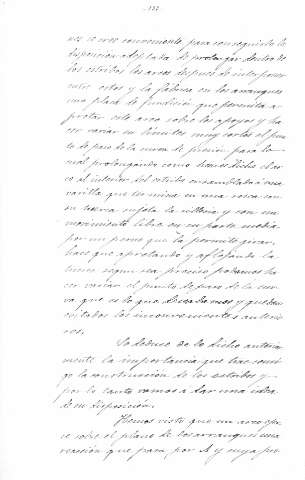 vez se cree conveniente, para conseguirlo la
disposicion adoptada de prolongar dentro de
los estribos los arcos despues de interponer
entre estos y la fabrica en los arranques
una placa de fundicion que permita a-
pretar este arco sobre los apoyos y ha-
cer variar en limites muy cortos el pun-
to de paso de la curva de presion para lo
cual prolongando como hemos dicho el ar-
co al interior del estribo ensamblada á una
varilla que termina en una rosca con
su tuerca sujeta la ultima y con un
movimiento libre en su parte media
por un perno que la permite girar,
hace que apretando y aflojando la
tuerca segun sea preciso podamos ha-
cer variar el punto de paso de la cur-
va que es lo que deseabamos y quedan
evitados los inconvenientes anterio-
res.
Se deduce de lo dicho anterior-
mente la importancia que trae consi-
go la construccion de los estribos y
por lo tanto vamos a dar una idea
de su disposicion.
Hemos visto que un arco ejer-
ce sobre el plano de los arranques una
reaccion que pasa por A y cuya